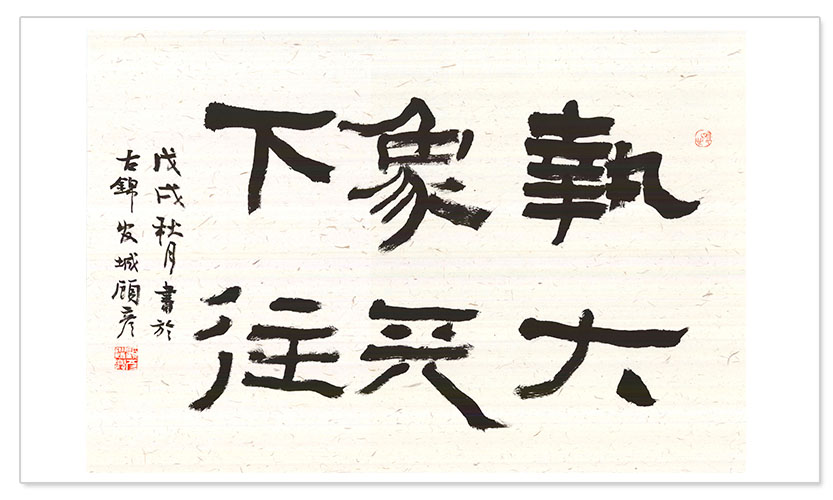 執大
象天
下往
戊戌秋月書於
古錦官城顾彦